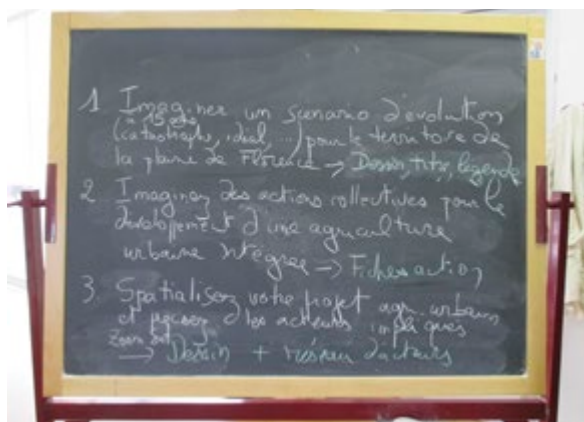 1 Imaginez un scenario d'évolution
(à 15 ans)
(catastrophe, idéal, ...) pour le territoire de
la plaine de Florence → Dessin, titre, légende
2 Imaginez des actions collectives pour le
developpement d'une agriculture
urbaine intégrée → Fiches action
3. Spatialisez votre projet agri-urbain
et precisez les acteurs impliqués
Zoom sur
→ Dessin + réseau d'acteurs